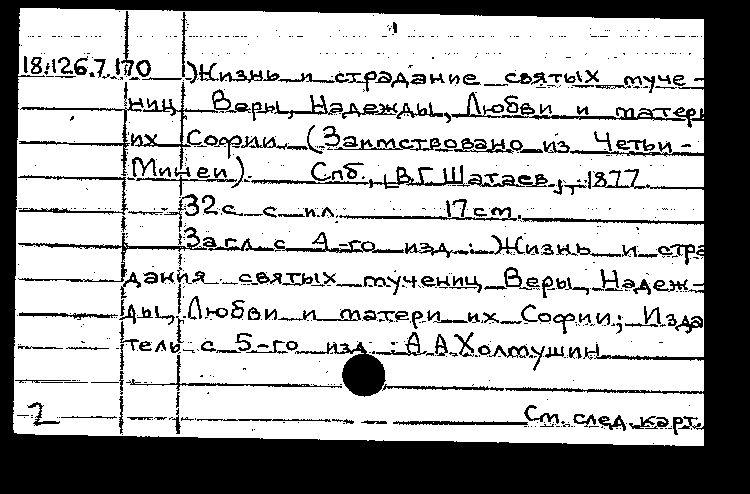 18.126.7.170 Жизнь и страдание святых муче-
ниц Веры, Надежды, Любви и матери
их Софии. (Заимствовано из Четьи-
Минеи). Спб., В.Г.Шатаев, 1877.
32 с. с ил. 17 см.
Загл. с 4-го изд.: Жизнь и стра
дания святых мучениц Веры, Надеж-
ды, Любви и матери их Софии; Изда
тель с 5-го изд.: А.А.Холмушин
2 См. след. карт.